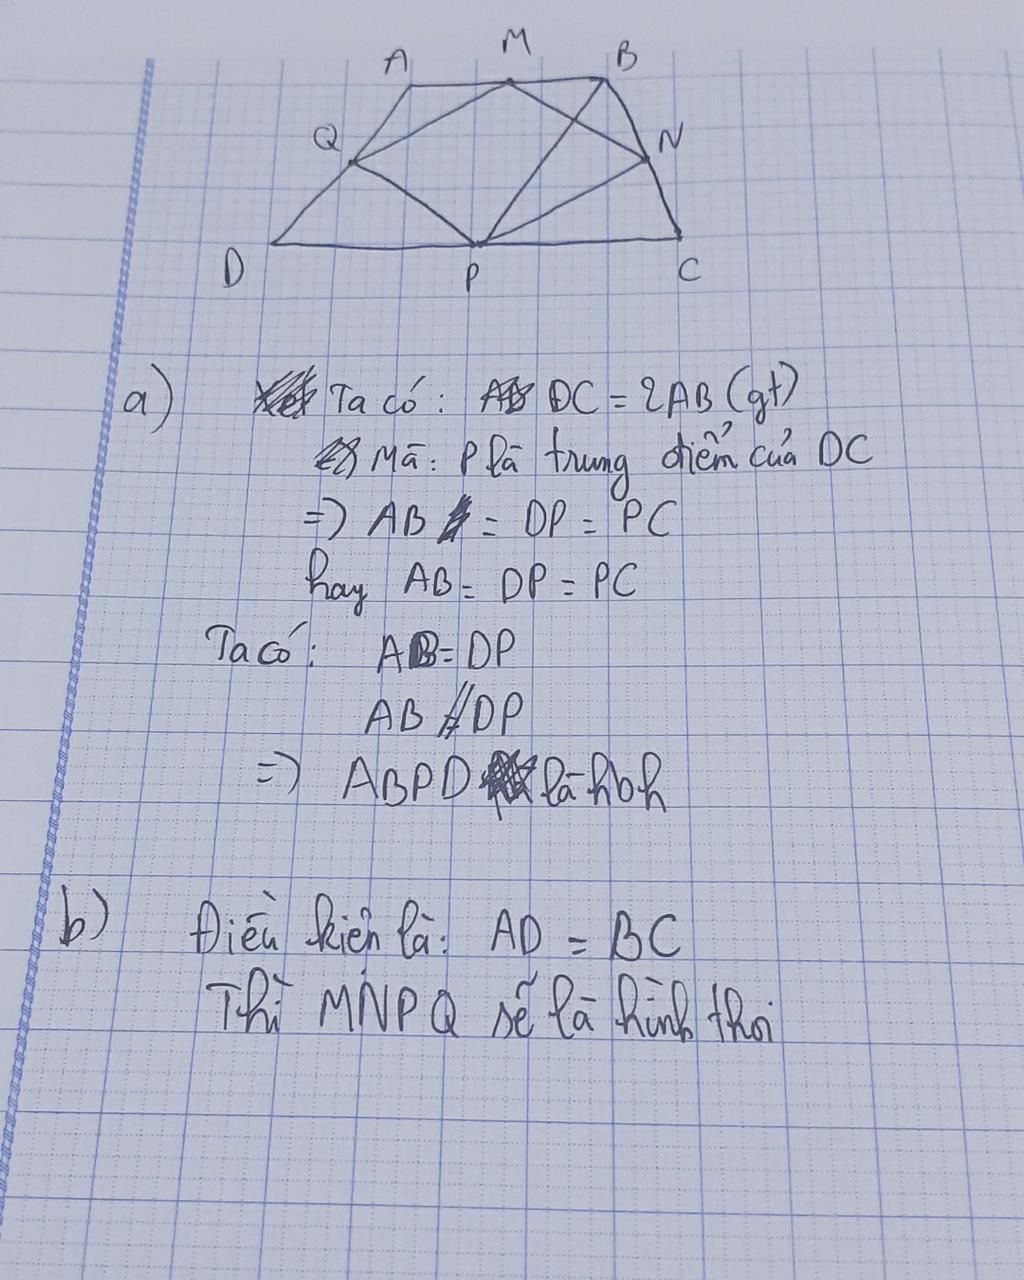 A M B
Q N
D P C
a) Ta có: DC = 2AB (gt)
Mà: P là trung điểm của DC
=> AB = DP = PC
hay AB = DP = PC
Ta có: AB = DP
AB // DP
=> ABPD là hbh
b) Điều kiện là: AD = BC
Thì MNPQ sẽ là hình thoi